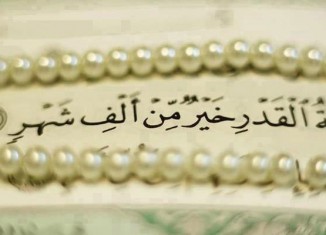 ةُ ٱلۡقَدۡرِ خَيۡرٌ مِّنۡ أَلۡفِ شَهۡرٍ